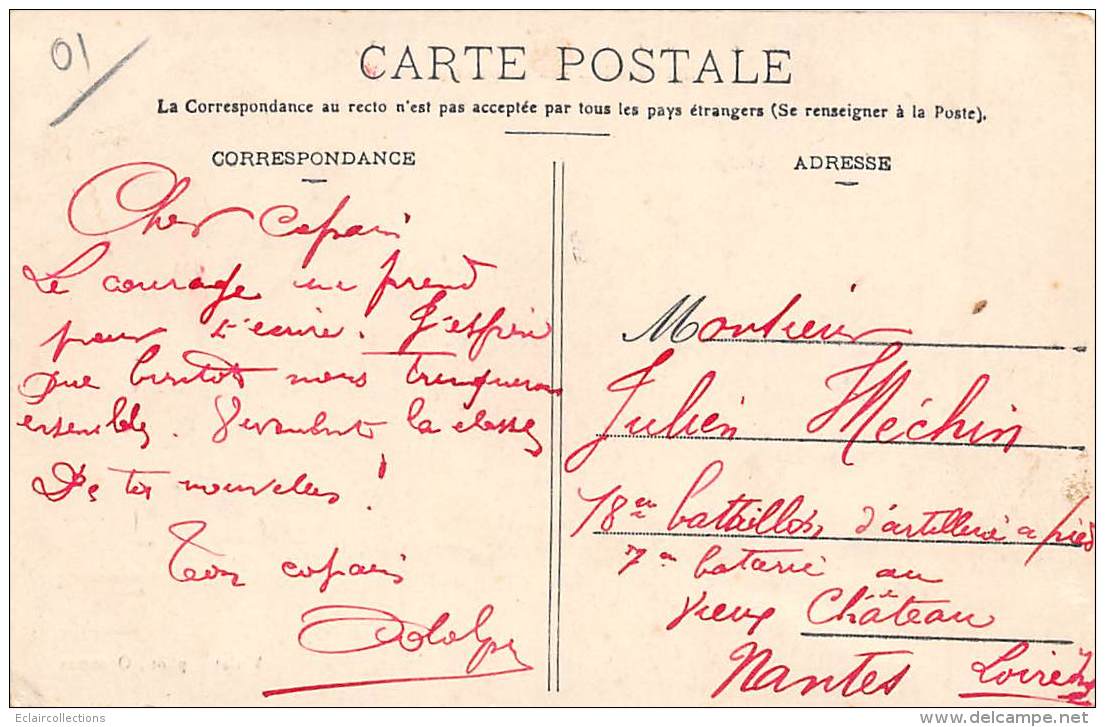 01
CARTE POSTALE
La Correspondance au recto n'est pas acceptée par tous les pays étrangers (Se renseigner à la Poste).
CORRESPONDANCE
Cher Copain
Le courage me prend
pour t'ecrire. J'espère
que bientot nous trinquerons
ensembles. Vivement la classe
De tes nouvelles !
Ton copain
Adolphe
ADRESSE
Monsieur
Julien Méchin
18em bataillon d'artillerie a pied
7em batterie au
Vieux Château
Nantes Loire Infre
Eclaircollections
delcampe.net